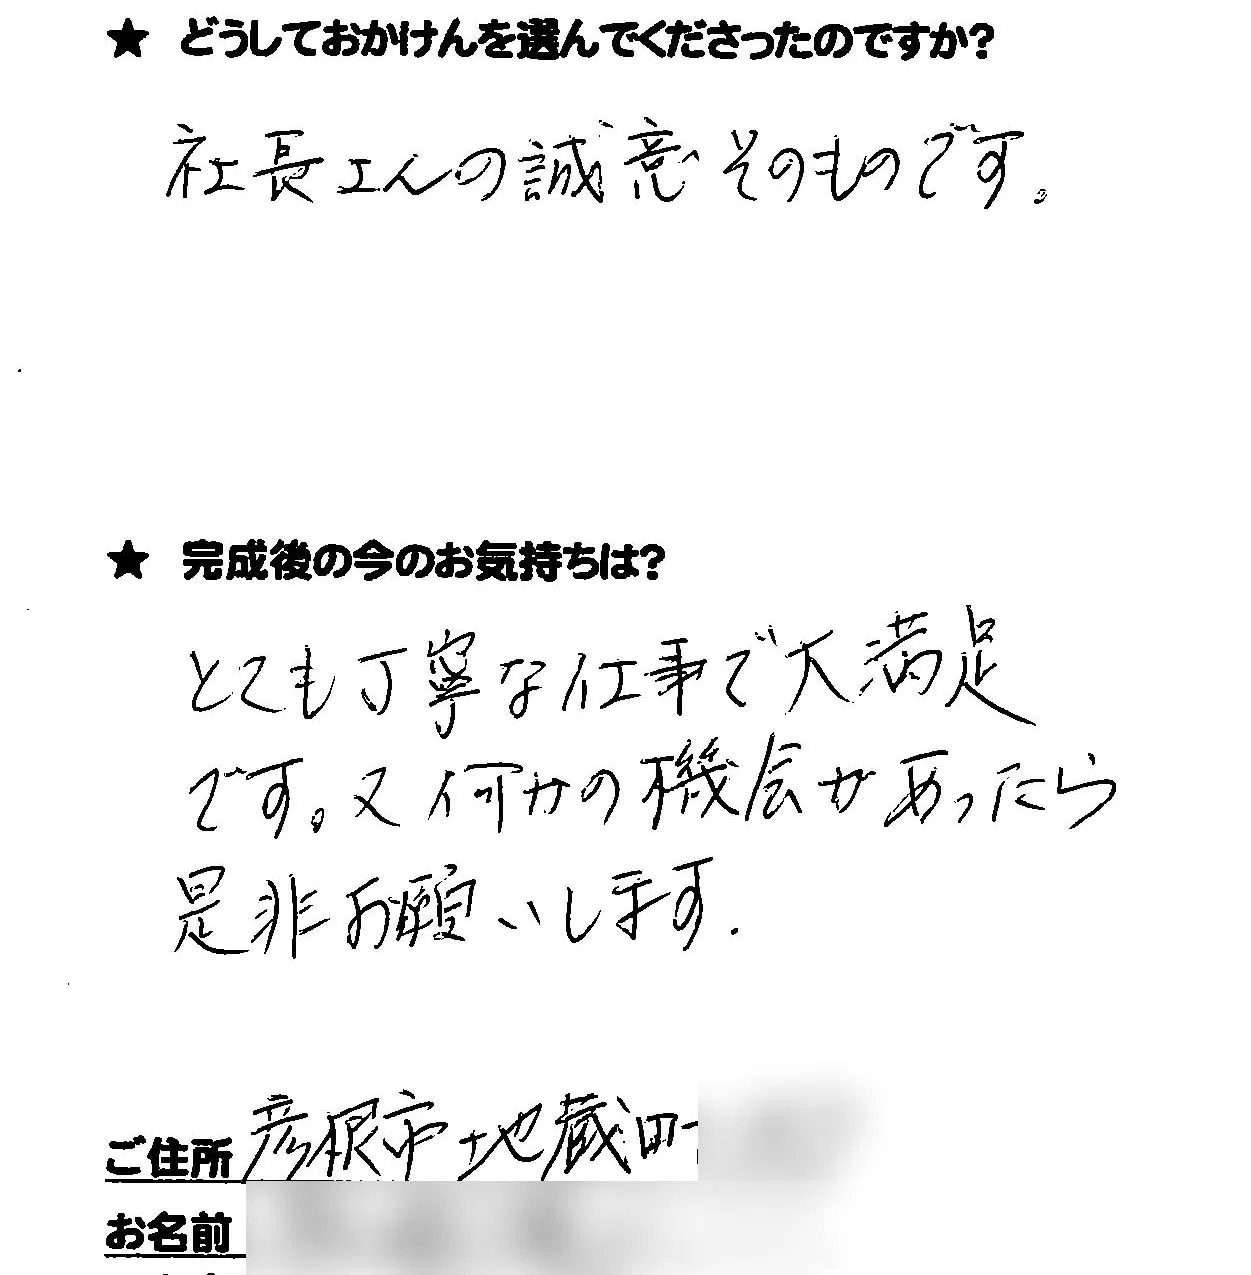 ★ どうしておかけんを選んでくださったのですか?
社長さんの誠意そのものです。
★ 完成後の今のお気持ちは?
とても丁寧な仕事で大満足
です。又何かの機会があったら
是非お願いします.
ご住所 彦根市地蔵町
お名前